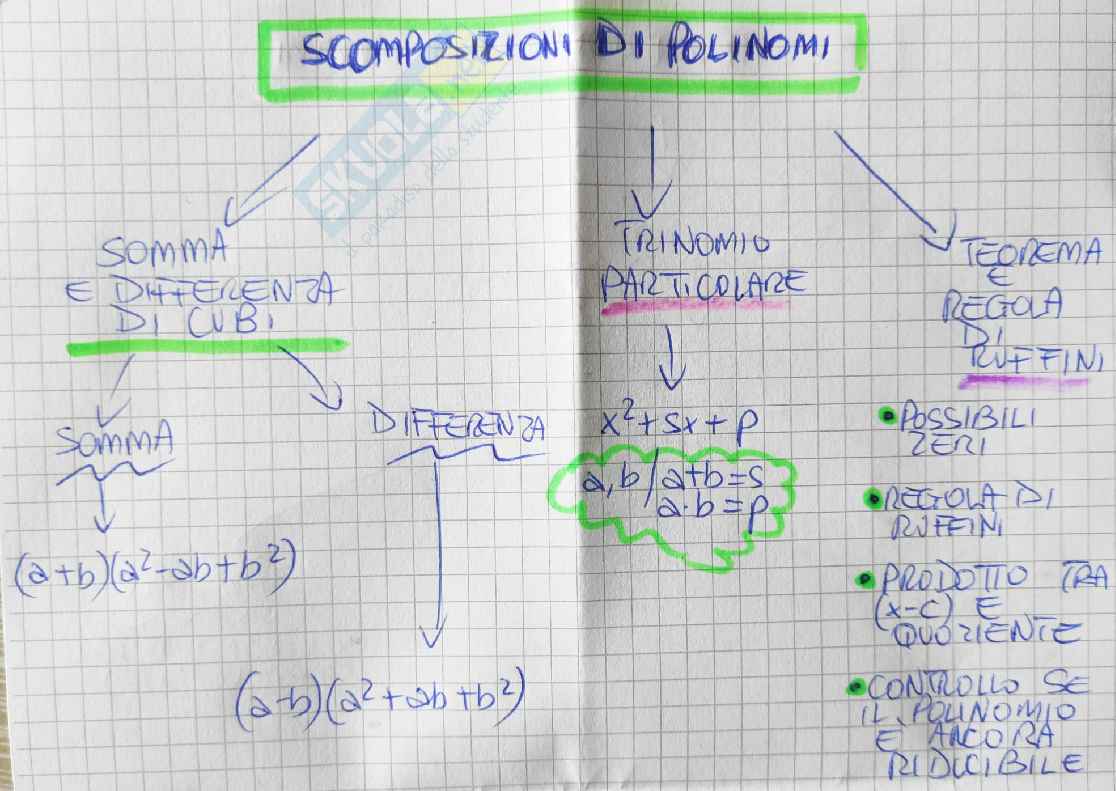 SCOMPOSIZIONI DI POLINOMI
SKUOLA.net
il paradiso dello studente
SOMMA
E DIFFERENZA
DI CUBI
SOMMA
(a+b)(a²-ab+b²)
DIFFERENZA
(a-b)(a²+ab+b²)
TRINOMIO
PARTICOLARE
x²+sx+p
a, b / a+b=s
a·b=p
TEOREMA
E
REGOLA
DI
RUFFINI
• POSSIBILI
ZERI
• REGOLA DI
RUFFINI
• PRODOTTO TRA
(x-c) E
QUOZIENTE
• CONTROLLO SE
IL POLINOMIO
È ANCORA
RIDUCIBILE